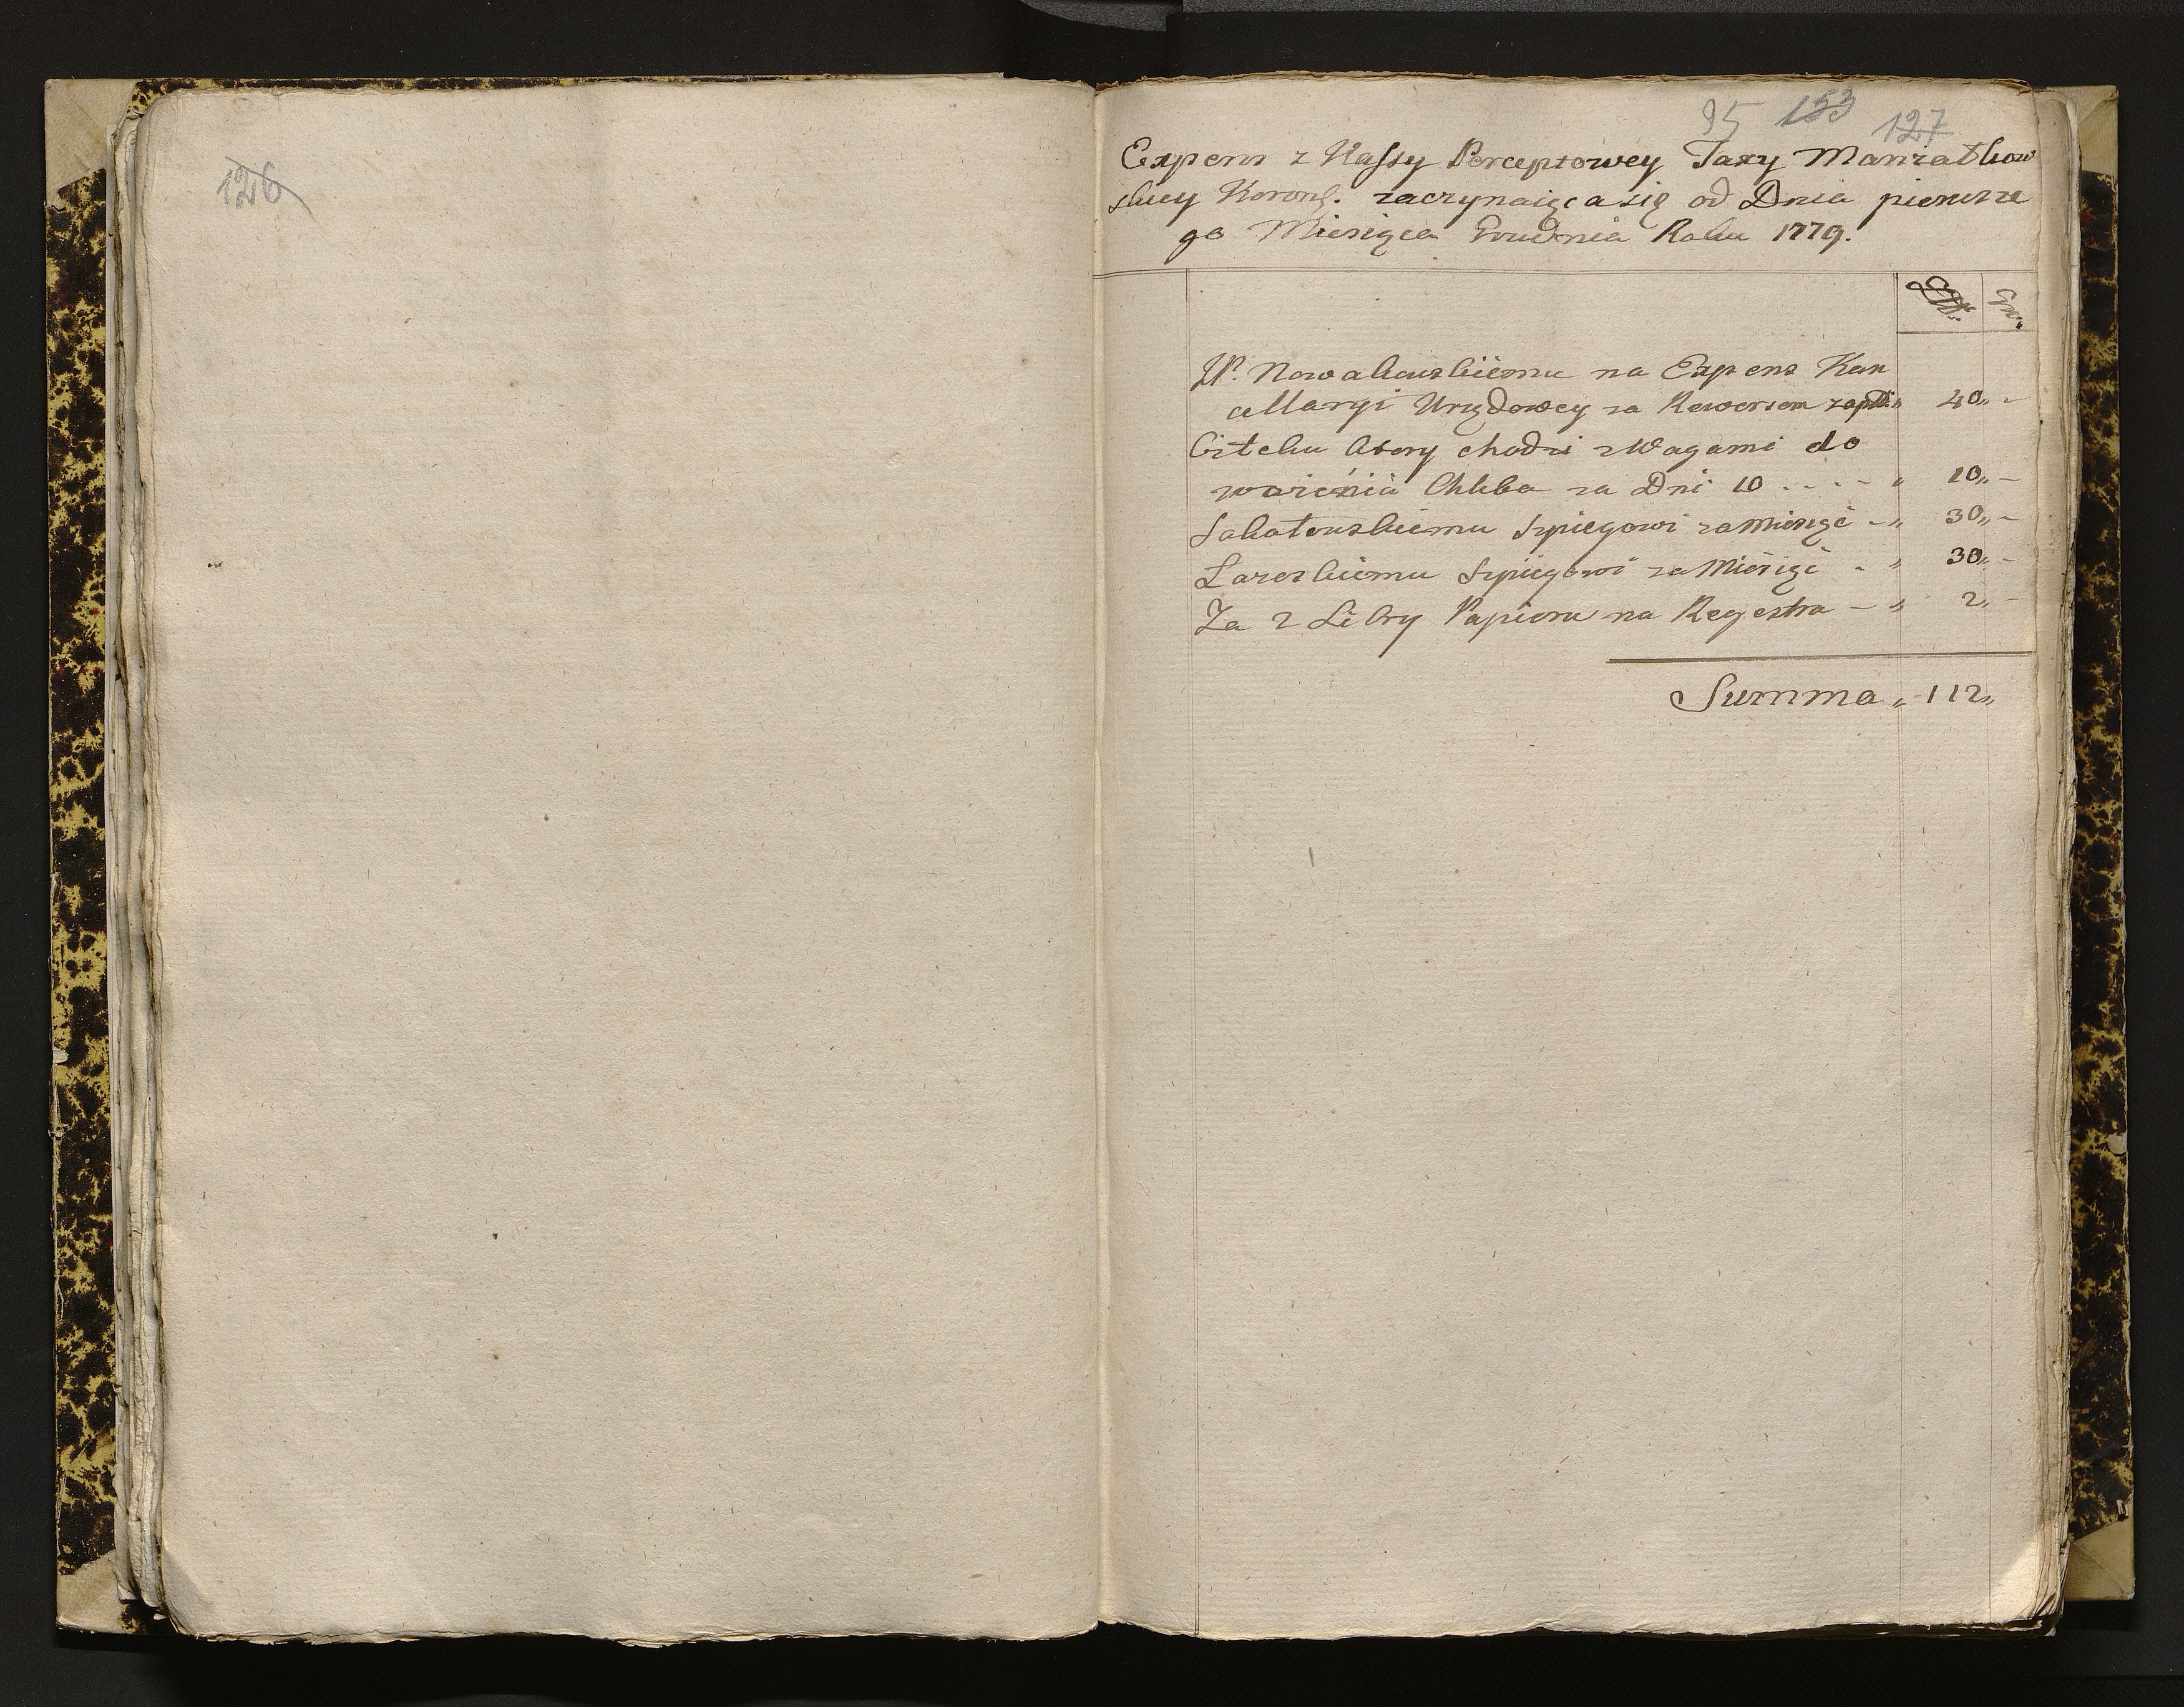 126
95 153 127
Expens z Kassy Perceptowey Taxy Marszałkow
skiey Koronź. zaczynaiąca się od Dnia pierwsze
go Miesiąca Grudnia Roku 1779.
Gr:
JP. Nowakowskiemu na Expens Kan
cellaryi Urzędowey za Rewersem zapł: " 40,, -
Citeku ktory chodzi z Wagami do
ważenia Chleba za Dni 10 . . . - " 10,, -
Sakatowskiemu Szpiegowi za Miesiąc - " 30,, -
Łazeskiemu Szpiegowi za Miesiąc - " 30,, -
Za 2 Libry Papieru na Regestra - " 2,, -
Summa " 112,,